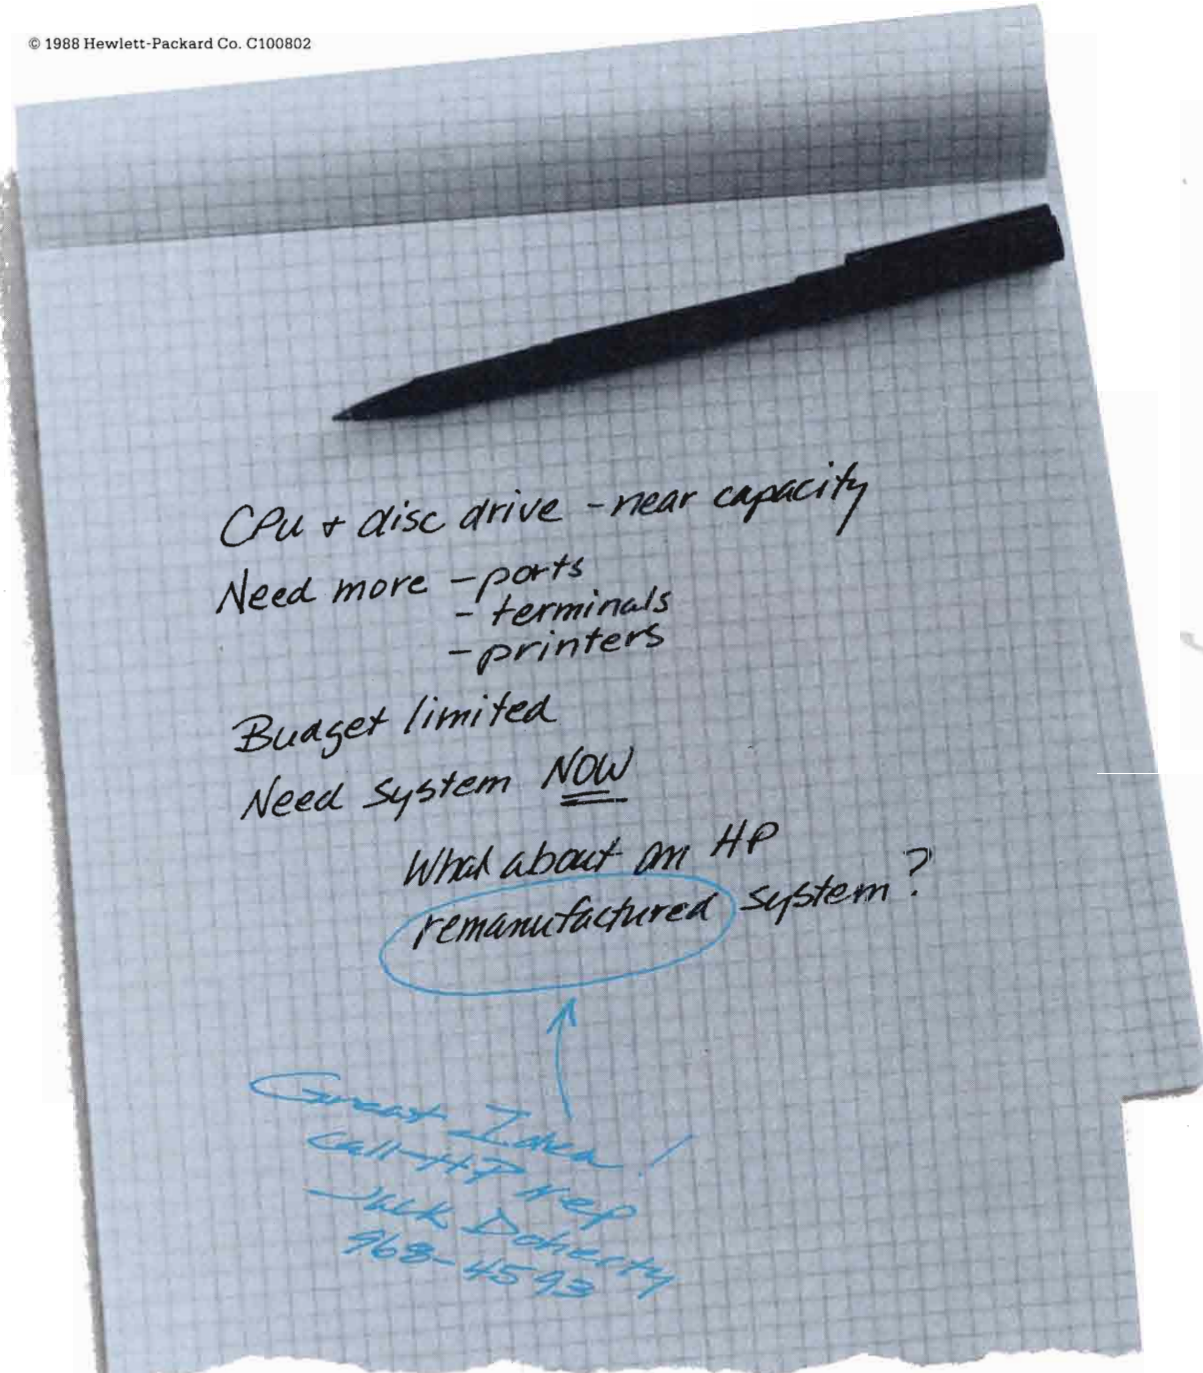 © 1988 Hewlett-Packard Co. C100802
CPU + disc drive - near capacity
Need more - ports
- terminals
- printers
Budget limited
Need system NOW
What about an HP
remanufactured system?
Great Idea!
Call HP rep
Jack Doherty
968-4593